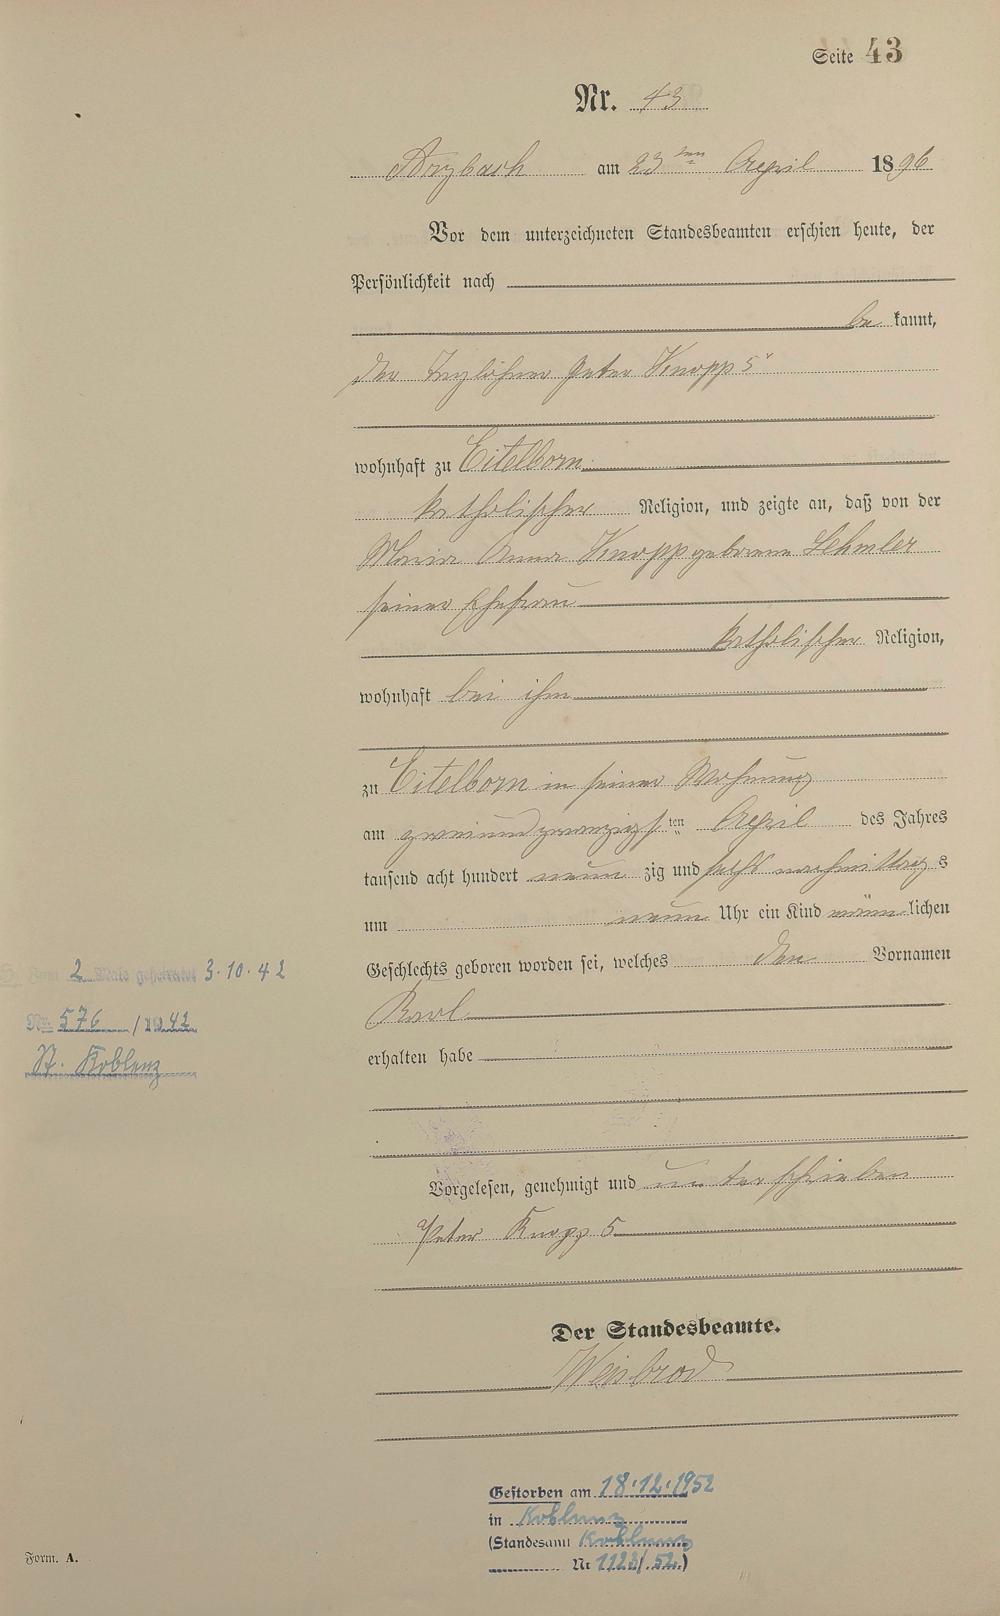 Seite 43
Nr. 43
Arzbach am 23ten April 1896
Vor dem unterzeichneten Standesbeamten erschien heute, der
Persönlichkeit nach
be kannt,
der Taglöhner Peter Knopp 5r
wohnhaft zu Eitelborn
katholischer Religion, und zeigte an, daß von der
Maria Anna Knopp geborene Lehmler
seiner Ehefrau
katholischer Religion,
wohnhaft bei ihm
zu Eitelborn in seiner Wohnung
am zweiundzwanzigsten April des Jahres
tausend acht hundert neun zig und sechs nachmittags
um neun Uhr ein Kind männlichen
Geschlechts geboren worden sei, welches den Vornamen
Karl
erhalten habe
Vorgelesen, genehmigt und unterschrieben
Peter Knopp 5
Der Standesbeamte.
Weisbrod
Zum 2 Male geheiratet 3.10.42
Nr. 576 / 1942
St. Koblenz
Gestorben am 18.12.1952
in Koblenz
(Standesamt Koblenz
Nr 1122/52.)
Form. A.